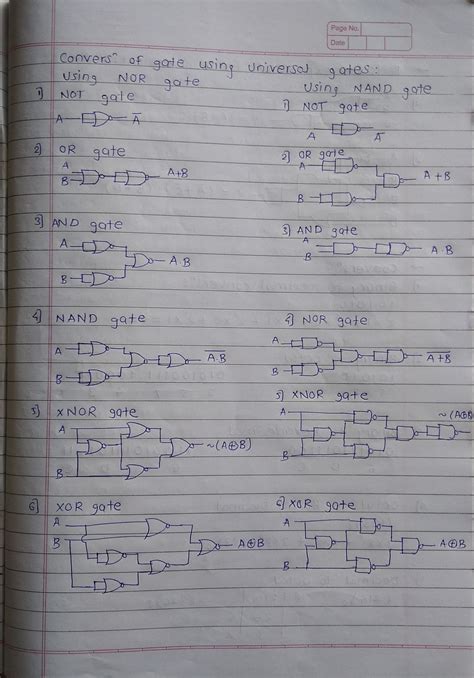 Page No.
Date
Conversⁿ of gate using universal gates:
Using NOR gate
1) NOT gate
A
A̅
2) OR gate
A
B
A+B
3) AND gate
A
B
A.B
4) NAND gate
A
B
A̅.̅B̅
5) XNOR gate
A
B
~(A⊕B)
6) XOR gate
A
B
A⊕B
Using NAND gate
1) NOT gate
A
A̅
2) OR gate
A
B
A+B
3) AND gate
A
B
A.B
4) NOR gate
A
B
A̅+̅B̅
5) XNOR gate
A
B
~(A⊕B)
6) XOR gate
A
B
A⊕B